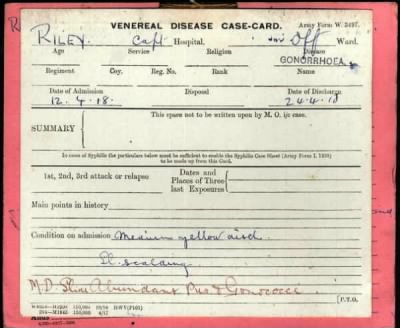 VENEREAL DISEASE CASE-CARD.
Army Form W. 3497.
RILEY. Capt Hospital. Off Ward.
Age Service Religion Disease
GONORRHOEA.
Regiment Coy. Reg. No. Rank Name
Date of Admission Disposal Date of Discharge
12.4.18. 24.4.18
This space not to be written upon by M. O. i/c case.
SUMMARY
In cases of Syphilis the particulars below must be sufficient to enable the Syphilis Case Sheet (Army Form I. 1238)
to be made up from this Card.
1st, 2nd, 3rd attack or relapse
Dates and
Places of Three
last Exposures
Main points in history
Condition on admission Medium yellow disch.
Sl. scalding
M.D. Slide Abundant Pus & Gonococci
[P.T.O.